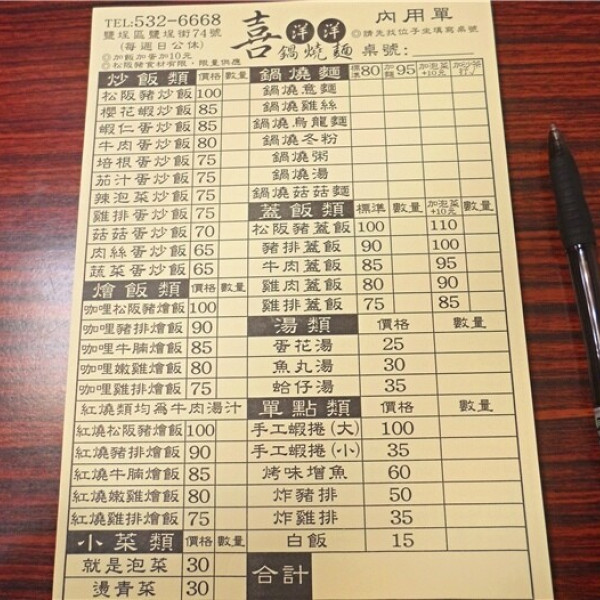 TEL:532-6668
鹽埕區鹽埕街74號
(每週日公休)
◎加飯加蛋加10元
◎松阪豬食材有限，限量供應
喜洋洋鍋燒麵
內用單
◎請先找位子坐填寫桌號
桌號:
炒飯類 價格 數量
松阪豬炒飯 100
櫻花蝦炒飯 85
蝦仁蛋炒飯 85
牛肉蛋炒飯 80
培根蛋炒飯 75
茄汁蛋炒飯 75
辣泡菜炒飯 75
雞排蛋炒飯 75
菇菇蛋炒飯 70
肉絲蛋炒飯 65
蔬菜蛋炒飯 65
燴飯類 價格 數量
咖哩松阪豬燴飯 100
咖哩豬排燴飯 90
咖哩牛腩燴飯 85
咖哩嫩雞燴飯 80
咖哩雞排燴飯 75
紅燒類均為牛肉湯汁
紅燒松阪豬燴飯 100
紅燒豬排燴飯 90
紅燒牛腩燴飯 85
紅燒嫩雞燴飯 80
紅燒雞排燴飯 75
小菜類 價格 數量
就是泡菜 30
燙青菜 30
鍋燒麵 標準80 加麵95 加泡菜+10元 加沙茶打ˇ
鍋燒意麵
鍋燒雞絲
鍋燒烏龍麵
鍋燒冬粉
鍋燒粥
鍋燒湯
鍋燒菇菇麵
蓋飯類 標準 數量 加泡菜+10元 數量
松阪豬蓋飯 100 110
豬排蓋飯 90 100
牛肉蓋飯 85 95
雞肉蓋飯 80 90
雞排蓋飯 75 85
湯類 價格 數量
蛋花湯 25
魚丸湯 30
蛤仔湯 35
單點類 價格 數量
手工蝦捲(大) 100
手工蝦捲(小) 35
烤味增魚 60
炸豬排 50
炸雞排 35
白飯 15
合計